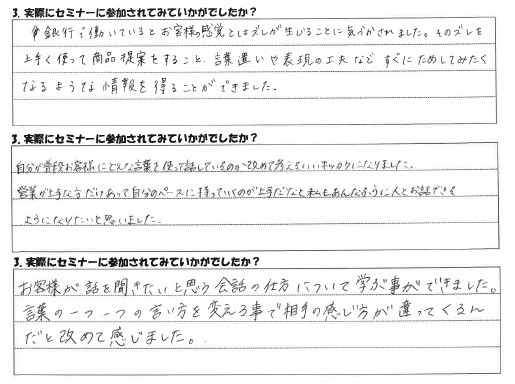 3. 実際にセミナーに参加されてみていかがでしたか？
銀行で働いているとお客様の感覚とはズレが生じることに気づかされました。そのズレを
上手く使って商品提案をすること、言葉遣いや表現の工夫など すぐにためしてみたく
なるような情報を得ることができました。
3. 実際にセミナーに参加されてみていかがでしたか？
自分が普段お客様にどんな言葉を使って話しているのか改めて考えるいいキッカケになりました。
営業が上手な方だけあって自分のペースに持っていくのが上手だなと私もあんなふうに人とお話できる
ようになりたいと思いました。
3. 実際にセミナーに参加されてみていかがでしたか？
お客様が話を聞きたいと思う会話の仕方について学ぶ事ができました。
言葉の一つ一つの言い方を変える事で相手の感じ方が違ってくるん
だと改めて感じました。